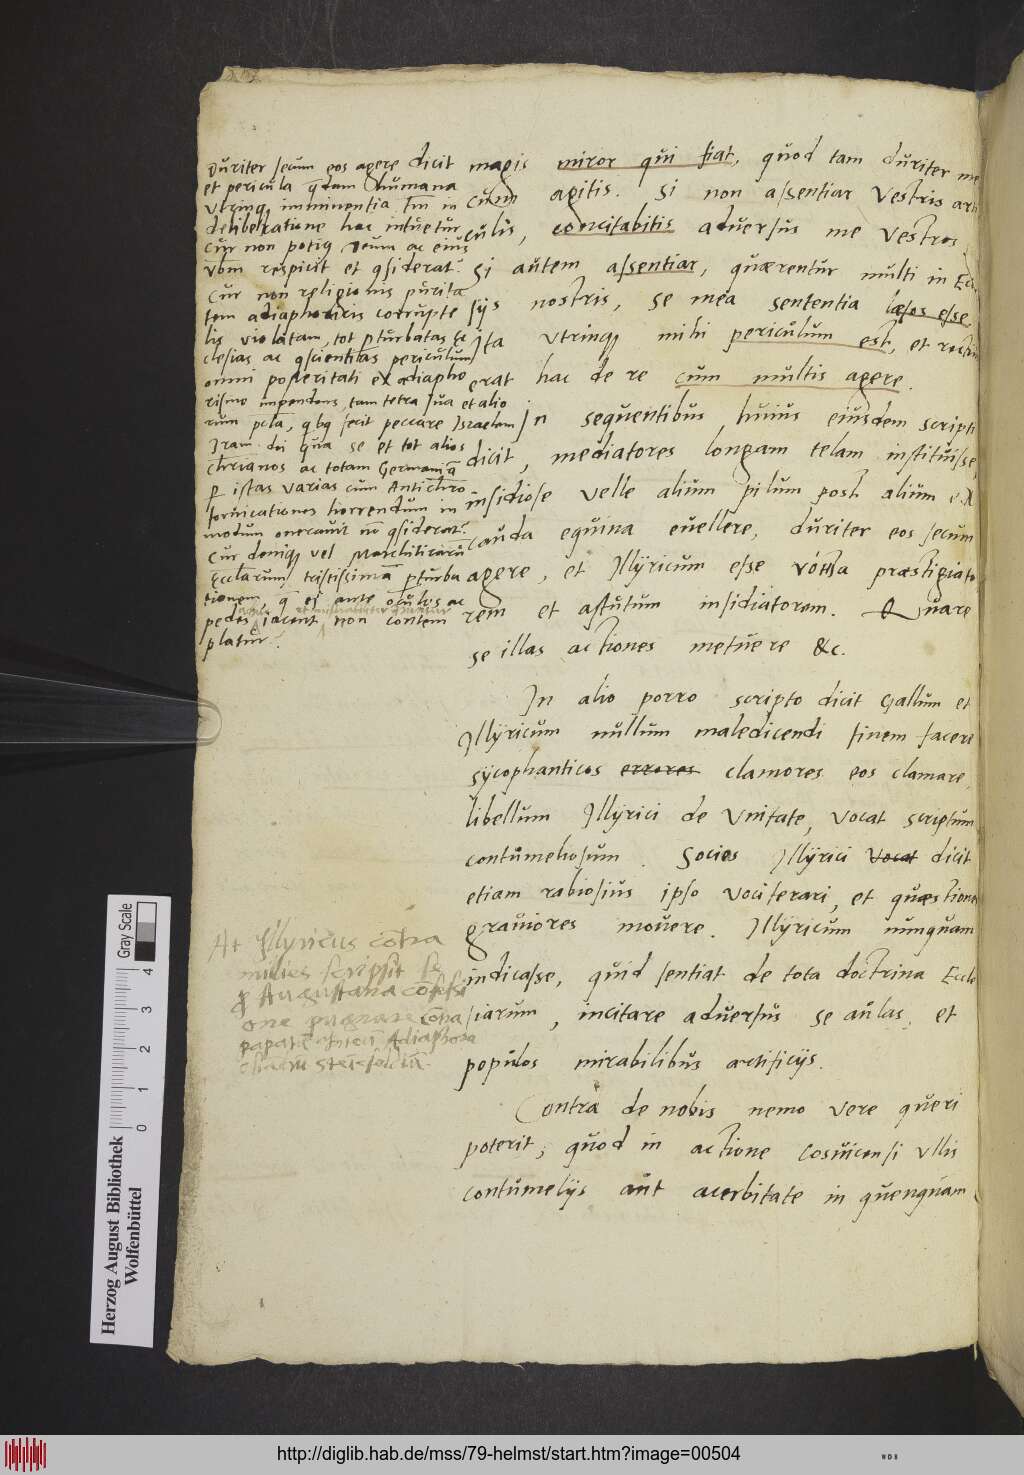 magis miror qui fiat, quod tam duriter me
cum agitis. Si non assentiar Vestris arti
culis, concitabitis aduersus me Vestros
Si autem assentiar, quærentur multi in Eccle
siis nostris, se mea sententia læsos esse.
Ita vtrinq; mihi periculum est, et rectius
erat hac de re cum multis agere.
In sequentibus huius eiusdem scripti
dicit, mediatores longam telam instituisse
insidiose velle alium pilum post alium ex
cauda equina euellere, duriter eos secum
agere, et Illyricum esse præstigiato
rem et astutum insidiatorem. Quare
se illas actiones metuere &c.
In alio porro scripto dicit Gallum et
Illyricum nullum maledicendi finem facere
sycophanticos errores clamores eos clamare,
libellum Illyrici de Vnitate, vocat scriptum
contumeliosum. Socios Illyrici vocat dicit
etiam rabiosius ipso vociferari, et quæstiones
grauiores mouere. Illyricum nunquam
indicasse, quid sentiat de tota doctrina Eccle
siarum, incitare aduersus se aulas, et
populos mirabilibus artificijs.
Contra de nobis nemo vere queri
poterit, quod in actione Cosuicensi vllis
contumelijs aut acerbitate in quenquam
Duriter secum eos agere dicit
et pericula quædam humana
vtrinq; imminentia. Tm in
deliberatione hac intuetur
cur non potiq Deum ac eius
vbm respicit et qsiderat?
Cur non religionis purita
tem adiaphoricis corrupte
lis violatam, tot pturbatas Ec
clesias ac qscientias periculum
omni posteritati ex adiapho
rismo impendens, tam tetra sua et alio
rum pcta, qbq fecit peccare Israelem
Iram dei qua se et tot alios
chrianos ac totam Germaniā
p istas varias cum Antichro
fornicationes horrendum in
modum onerauit nō qsiderat?
Cur deniq; vel Marchiticarū
Ecclarum tristissimā pturba
tionem q ei ante oculos ac
pedes iacent non contem
platur?
At Illyricus cōtra
millies scripsit se
p Augustana cōfessi
one pugnare cōtra
Adiaphora
Herzog August Bibliothek
Wolfenbüttel
Gray Scale
0 1 2 3 4
http://diglib.hab.de/mss/79-helmst/start.htm?image=00504